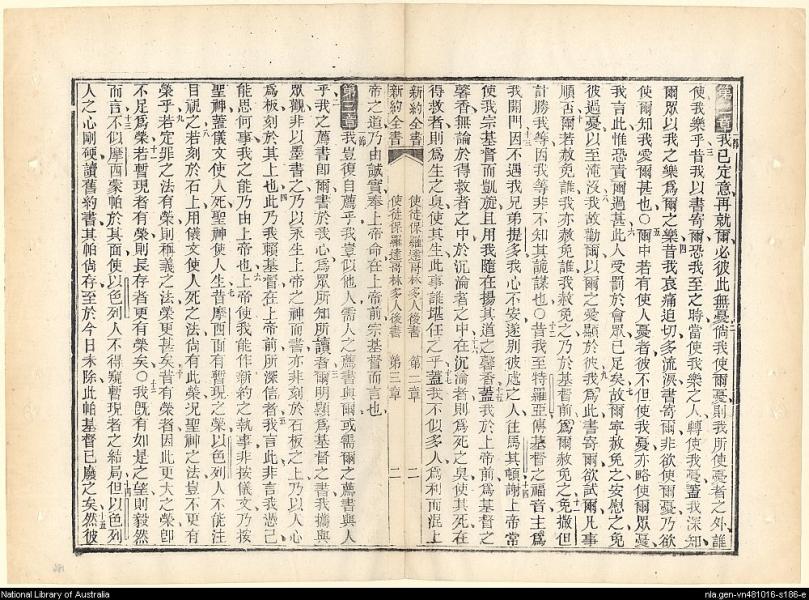 第二章 我已定意再就爾必彼此無憂倘我使爾憂則我所使憂者之外誰
使我樂乎昔我以書寄爾恐我至之時當使我樂之人轉使我憂蓋我深知
爾眾以我之樂為爾之樂昔我哀痛迫切多流淚書寄爾非欲使爾憂乃欲
使爾知我愛爾甚也○爾中若有使人憂者彼不但使我憂亦略使爾眾憂
我言此惟恐責爾過甚此人受罰於會眾已足矣故爾寧赦免之安慰之免
彼過憂以至淹沒我故勸爾以爾之愛顯於彼我為此書寄爾欲試爾凡事
順否爾若赦免誰我亦赦免誰我赦免之乃於基督前為爾赦免之免撒但
計勝我等因我等非不知其詭謀也○昔我至特羅亞傳基督之福音主為
我開門因不遇我兄弟提多我心不安遂別彼處之人往馬其頓謝上帝常
使我宗基督而凱旋且用我隨在揚其道之馨香蓋我於上帝前為基督之
馨香無論於得救者之中於沉淪者之中在沉淪者則為死之臭使其死在
得救者則為生之臭使其生此事誰堪任之乎蓋我不似多人為利而混上
新約全書 使徒保羅達哥林多人後書 第二章 二
新約全書 使徒保羅達哥林多人後書 第三章 二
帝之道乃由誠實奉上帝命在上帝前宗基督而言也
第三章 我豈復自薦乎我豈似他人需人之薦書與爾或需爾之薦書與人
乎我之薦書即爾書於我心為眾所知所讀者爾明顯為基督之書我儕與
眾觀非以墨書之乃以永生上帝之神而書亦非刻於石板之上乃以人心
為板刻於其上也此乃我賴基督在上帝前所深信者我言此非言我憑己
能思何事我之能乃由上帝也上帝使我能作新約之執事非按儀文乃按
聖神蓋儀文使人死聖神使人生昔摩西面有暫現之榮以色列人不能注
目視之若刻於石上用儀文使人死之法尚有此榮況聖神之法豈不更有
榮乎若定罪之法有榮則稱義之法榮更甚矣昔有榮者因此更大之榮即
不足為榮若暫現者有榮則長存者更有榮矣○我既有如是之望則毅然
而言不似摩西蒙帕於其面使以色列人不得窺暫現者之結局但以色列
人之心剛硬讀舊約書其帕尚存至於今日未除此帕基督已廢之矣然彼
National Library of Australia
nla.gen-vn481016-s186-e